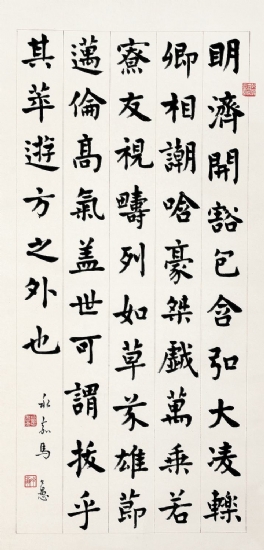 眀濟開豁包含弘大凌轢
卿相謿哈豪桀戲萬乘若
寮友視疇列如草芥雄節
邁倫高氣蓋世可謂拔乎
其萃遊方之外也
永嘉馬公愚